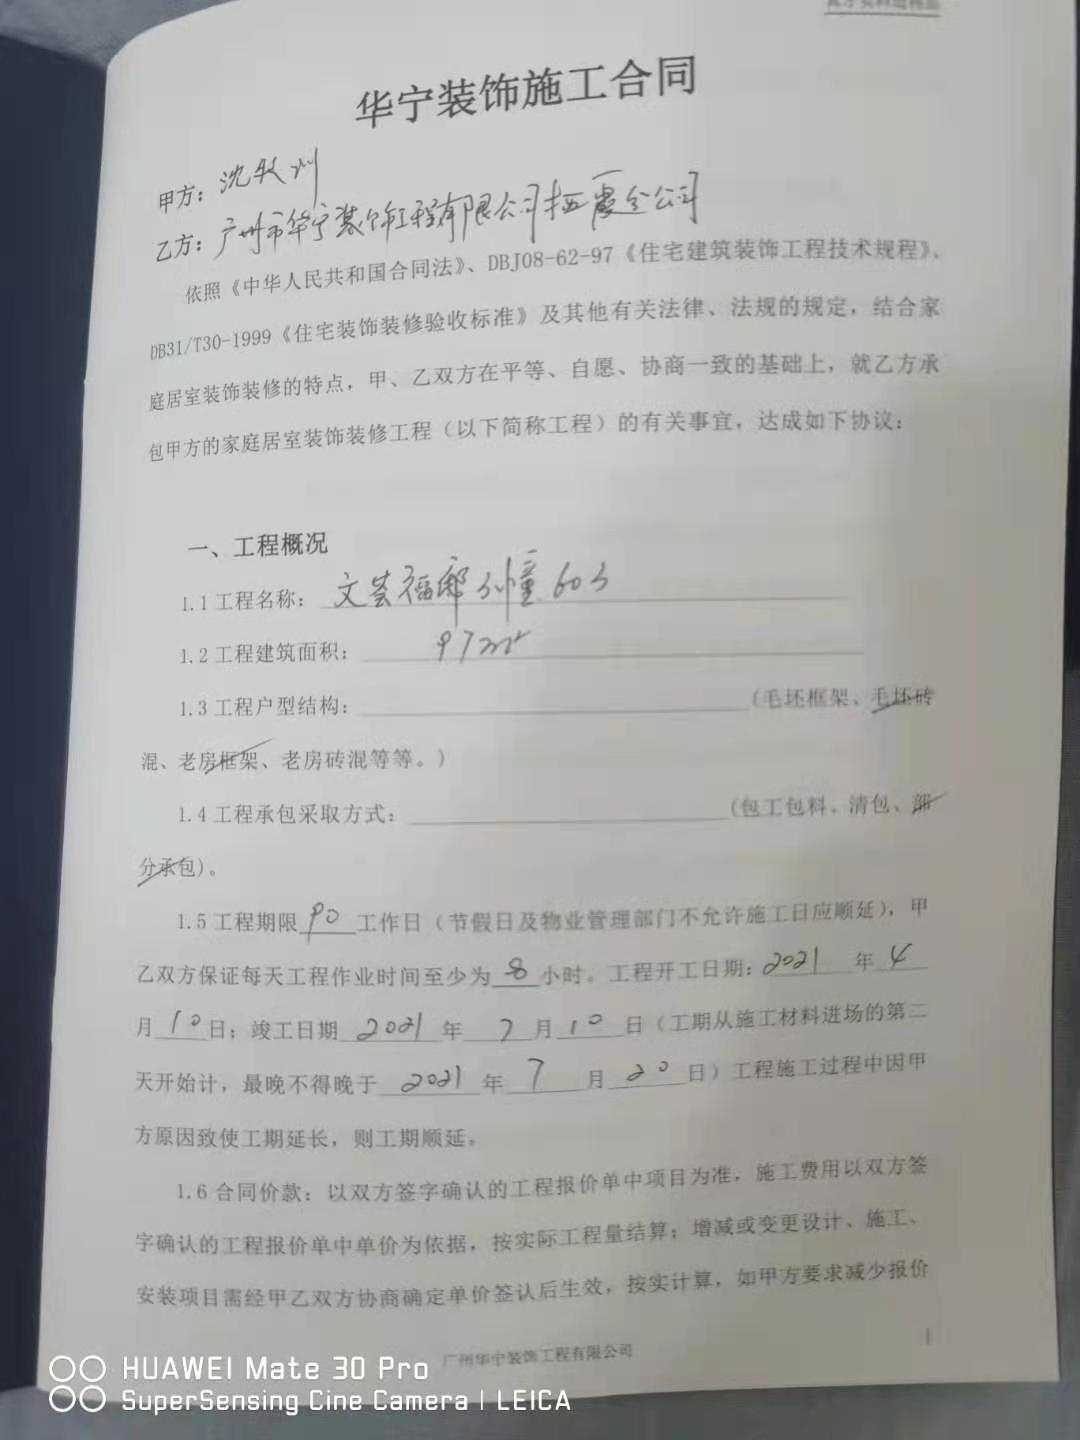 华宁装饰施工合同
甲方：沈
乙方：广州市华宁装饰工程有限公司栖霞分公司
依照《中华人民共和国合同法》、DBJ08-62-97《住宅建筑装饰工程技术规程》、
DB31/T30-1999《住宅装饰装修验收标准》及其他有关法律、法规的规定，结合家
庭居室装饰装修的特点，甲、乙双方在平等、自愿、协商一致的基础上，就乙方承
包甲方的家庭居室装饰装修工程（以下简称工程）的有关事宜，达成如下协议：
一、工程概况
1.1 工程名称：文荟福邸
1.2 工程建筑面积：97m²
1.3 工程户型结构：（毛坯框架、毛坯砖
混、老房框架、老房砖混等等。）
1.4 工程承包采取方式：（包工包料、清包、部
分承包）。
1.5 工程期限 90 工作日（节假日及物业管理部门不允许施工日应顺延），甲
乙双方保证每天工程作业时间至少为 8 小时。工程开工日期：2021 年 4
月 10 日；竣工日期 2021 年 7 月 10 日（工期从施工材料进场的第二
天开始计，最晚不得晚于 2021 年 7 月 20 日）工程施工过程中因甲
方原因致使工期延长，则工期顺延。
1.6 合同价款：以双方签字确认的工程报价单中项目为准，施工费用以双方签
字确认的工程报价单中单价为依据，按实际工程量结算；增减或变更设计、施工、
安装项目需经甲乙双方协商确定单价签认后生效，按实计算，如甲方要求减少报价
1
广州华宁装饰工程有限公司
HUAWEI Mate 30 Pro
SuperSensing Cine Camera | LEICA